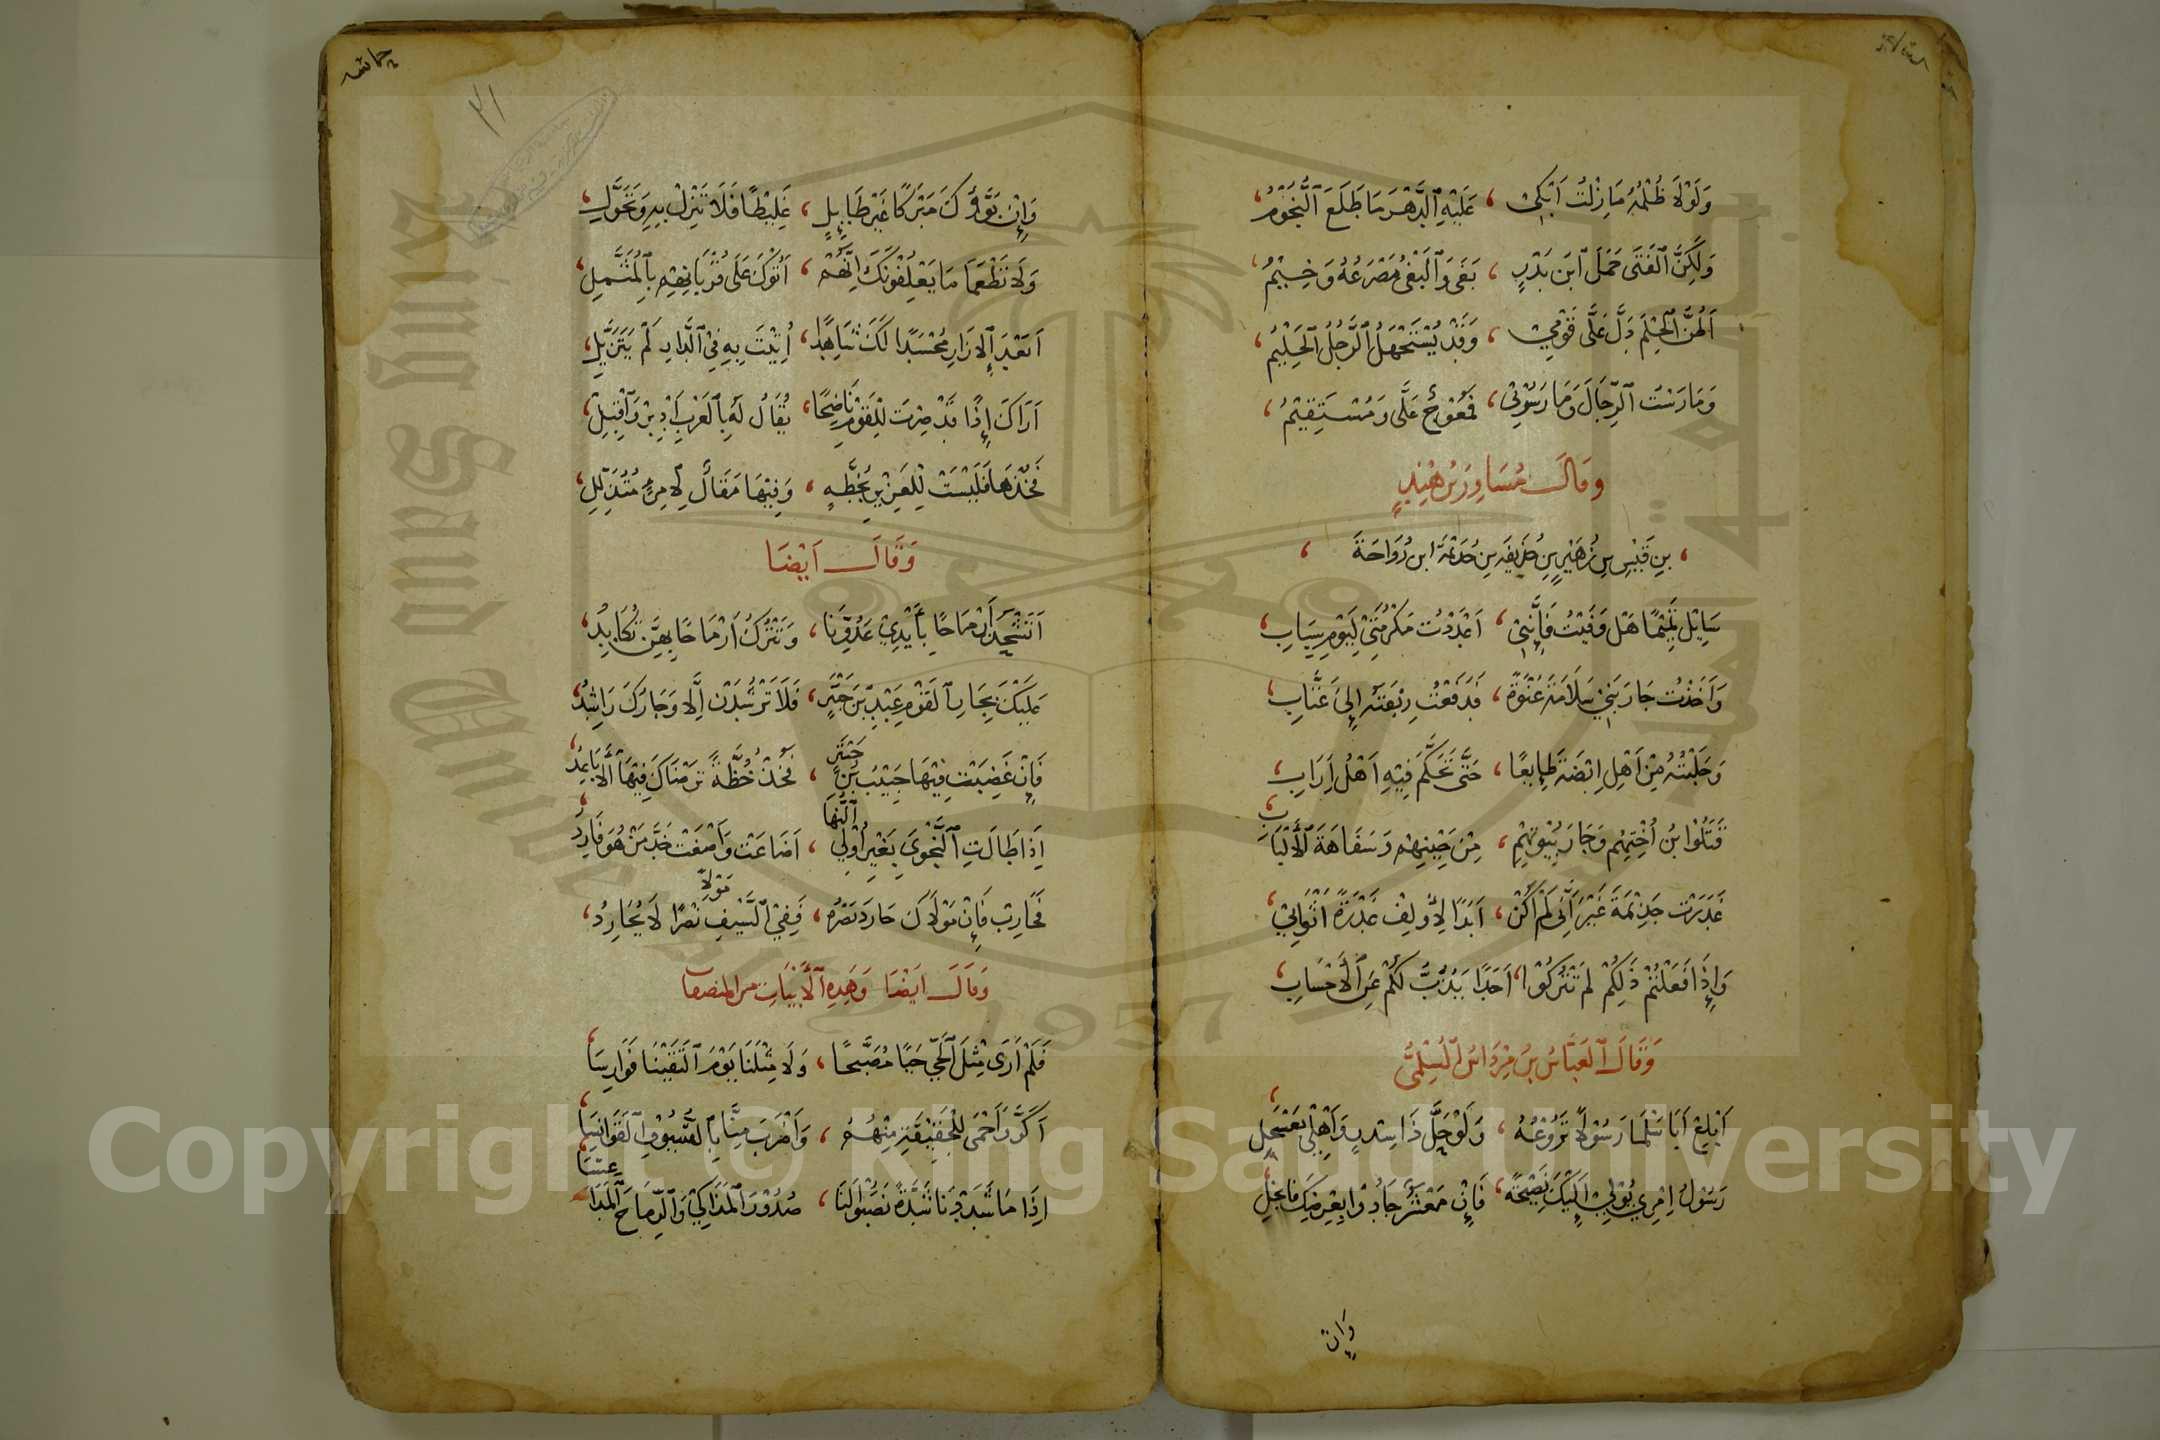 وَلَوْلَا ظُلْمُهُ مَا زِلْتُ اَبْكِىْ ، عَلَيْهِ ٱلدَّهْرَ مَا طَلَعَ ٱلنُّجُوْمُ
وَلَكِنَّ ٱلْفَتَى حَمَلَ ٱبْنَ بَدْرٍ ، بَغَى وَٱلْبَغْىُ مَصْرَعُهُ وَخِيْمُ
اَظُنُّ ٱلْحِلْمَ دَلَّ عَلَىَّ قَوْمِىْ ، وَقَدْ يُسْتَجْهَلُ ٱلرَّجُلُ ٱلْحَلِيْمُ
وَمَارَسْتُ ٱلرِّجَالَ وَمَارَسُوْنِىْ ، فَمُعْوَجٌّ عَلَىَّ وَمُسْتَقِيْمُ
وقَالَ مُسَاوِرُ بْنُ هِنْدٍ
، بن قَيْسِ بن زُهَيْرِ بنِ جَذِيْمَةَ ابن رُوَاحَةَ ،
سَائِلْ تَمِيْمًا هَلْ وَفَيْتُ فَإِنَّنِىْ ، اَعْدَدْتُ مَكْرُمَتِىْ لِيَوْمِ سِبَابِ
وَاَخَذْتُ جَارَ بَنِىْ سَلَامَةَ عُنْوَةً ، فَدَفَعْتُ رِبْقَتَهُ اِلَى عَتَّابِ
وَجَلَبْتُهُ مِنْ اَهْلِ اِبْضَةَ طَائِعًا ، حَتَّى تَحَكَّمَ فِيْهِ اَهْلُ اِرَابِ
قَتَلُوْا بْنَ اُخْتِهِمْ وَجَارَ بُيُوْتِهِمْ ، مِنْ حَيْنِهِمْ وَسَفَاهَةِ ٱلْأَلْبَابِ
غَدَرَتْ جَذِيْمَةُ غَيْرَ اَنِّىْ لَمْ اَكُنْ ، اَبَدًا لِأُولِفَ غَدْرَةً اَثْوَابِىْ
وَإِذَا فَعَلْتُمْ ذَلِكُمْ لَمْ تَتْرُكُوْا ، اَحَدًا يَذُبُّ لَكُمْ عَنِ ٱلْأَحْسَابِ
وَقَالَ ٱلْعَبَّاسُ بنُ مِرْدَاسِ ٱلسُّلَمِىُّ
اَبْلِغْ اَبَا سَلْمَى رَسُوْلًا تَرُوْعُهُ ، وَلَوْ حَلَّ ذَا سِدْرٍ وَاَهْلِىْ بِعَسْجَلِ
رَسُوْلُ امْرِئٍ يُهْدِىْ اِلَيْكَ نَصِيْحَةً ، فَإِنْ مَعْشَرٌ جَادُوْا بِعِرْضِكَ فَابْخَلِ
وَاِنْ
حماسه
٣١
وَإِنْ بَوَّؤُكَ مَبْرَكًا غَيْرَ طَايِلٍ ، غَلِيْظًا فَلَا تَنْزِلْ بِهِ وَتَحَوَّلِ
وَلَا تَطْعَمَا مَا يَعْلِفُوْنَكَ اِنَّهُمْ ، اَتَوْكَ عَلَى قُرْبَانِهِمْ بِالْمُثَمَّلِ
اَبَعْدَ ٱلْاِزَارِ مُجْسَدًا لَكَ شَاهِدًا ، اُتِيْتَ بِهِ فِى ٱلدَّارِ لَمْ يَتَزَيَّلِ
اَرَاكَ اِذًا قَدْ صِرْتَ لِلْقَوْمِ نَاضِحًا ، يُقَالُ لَهُ بِالْغَرْبِ اَدْبِرْ وَاَقْبِلِ
فَخُذْهَا فَلَيْسَتْ لِلْعَزِيْزِ بِخُطَّةٍ ، وَفِيْهَا مَقَالٌ لِامْرِئٍ مُتَذَلِّلِ
وَقَالَ اَيْضًا
اَتَشْحَذُ اَرْمَاحًا بِأَيْدِىْ عَدُوِّنَا ، وَتَتْرُكُ اَرْمَاحًا بِهِنَّ تُكَايِدُ
عَلَيْكَ بِجَارِ ٱلْقَوْمِ عَبْدِ بْنِ حَبْتَرٍ ، فَلَا تَرْشُدَنْ اِلَّا وَجَارُكَ رَاشِدُ
فَإِنْ غَضِبَتْ فِيْهَا حَبِيْبُ بْنُ حَبْتَرٍ ، فَخُذْ خُطَّةً تَرْضَاكَ فِيْهَا ٱلْأَبَاعِدُ
اِذَا طَالَتِ ٱلنَّجْوَى بِغَيْرِ اُوْلِى ٱلنُّهَا ، اَضَاعَتْ وَاَصْغَتْ خَدَّ مَنْ هُوَ فَارِدُ
فَحَارِبْ فَاِنْ مَوْلَاكَ حَارَدَ نَصْرُهُ ، فَفِى ٱلسَّيْفِ مَوْلًا نَصْرُهُ لَا يُحَارِدُ
وَقَالَ اَيْضًا وَهَذِهِ ٱلْأَبْيَاتُ من المنصفات
فَلَمْ اَرَى مِثْلَ ٱلْحَىِّ حَيًّا مُصَبَّحًا ، وَلَا مِثْلَنَا يَوْمَ ٱلْتَقَيْنَا فَوَارِسَا
اَكَرَّ وَاَحْمَى لِلْحَقِيْقَةِ مِنْهُمُ ، وَاَضْرَبَ مِنَّا بِالسُّيُوْفِ ٱلْقَوَانِسَا
اِذَا مَا شَدَدْنَا شَدَّةً نَصَبُوْا لَنَا ، صُدُوْرَ ٱلْمَذَاكِىْ وَٱلرِّمَاحَ ٱلْمَدَاعِسَا
King Saud University
1957
Copyright © King Saud University